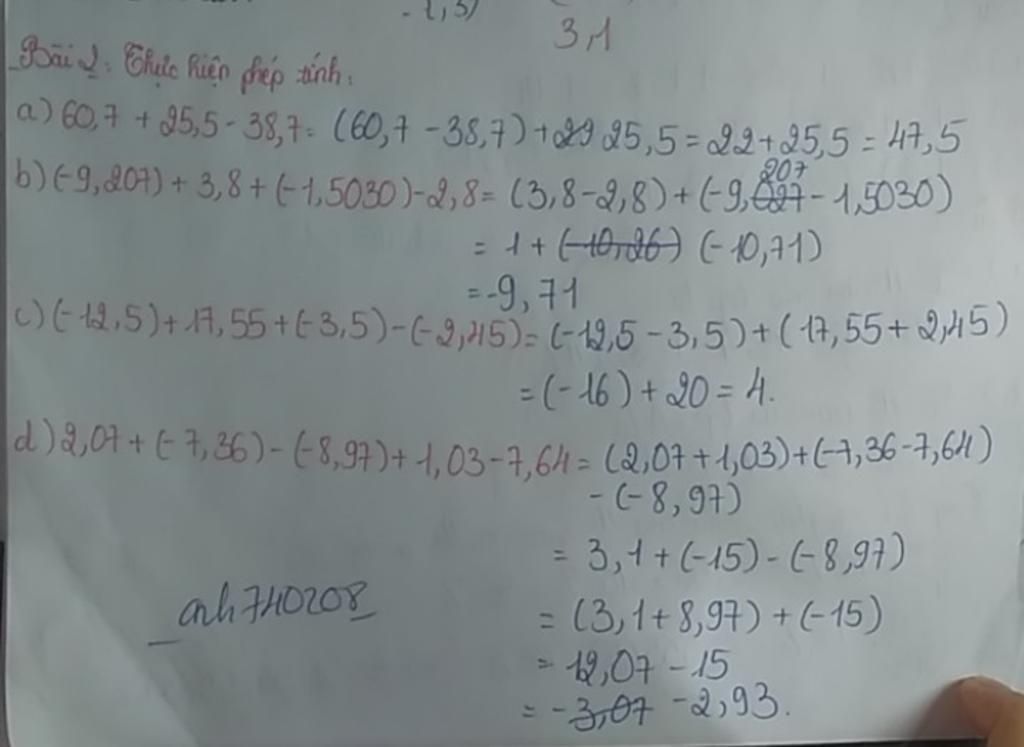 3,1
Bài 2: Thực hiện phép tính:
a) 60,7 + 25,5 - 38,7 = (60,7 - 38,7) + 25,5 = 22 + 25,5 = 47,5
207
b) (-9,207) + 3,8 + (-1,5030) - 2,8 = (3,8 - 2,8) + (-9,027 - 1,5030)
= 1 + (-10,26) (-10,71)
= -9,71
c) (-12,5) + 17,55 + (-3,5) - (-2,45) = (-12,5 - 3,5) + (17,55 + 2,45)
= (-16) + 20 = 4.
d) 2,07 + (-7,36) - (-8,97) + 1,03 - 7,64 = (2,07 + 1,03) + (-7,36 - 7,64)
- (-8,97)
= 3,1 + (-15) - (-8,97)
anh740208
= (3,1 + 8,97) + (-15)
= 12,07 - 15
= -3,07 -2,93.